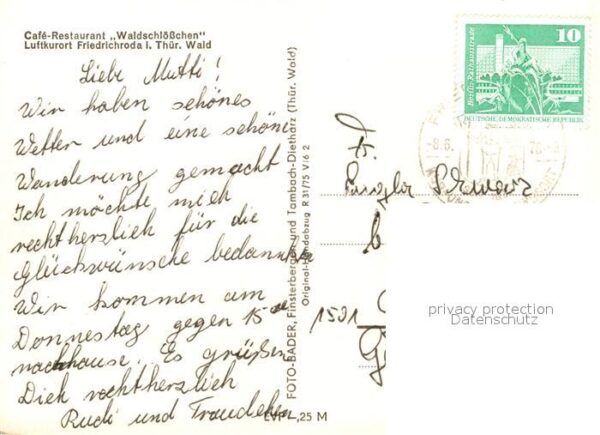 Café-Restaurant „Waldschlößchen"
Luftkurort Friedrichroda i. Thür. Wald
Liebe Mutti!
Wir haben schönes
Wetter und eine schöne
Wanderung gemacht
Ich möchte mich
recht herzlich für die
Glückwünsche bedanken
Wir kommen am
Donnestag gegen 15
nachhause. Es grüßen
Dich recht herzlich
Rudi und Traudchen
EVP -,25 M
FOTO-BÄDER, Finsterbergen und Tambach-Dietharz (Thür. Wald)
Original-Handabzug R 31/75 V/6 2
10
Berlin, Rathausstraße
DEUTSCHE DEMOKRATISCHE REPUBLIK
-8.6.
Fr.
1501
privacy protection
Datenschutz